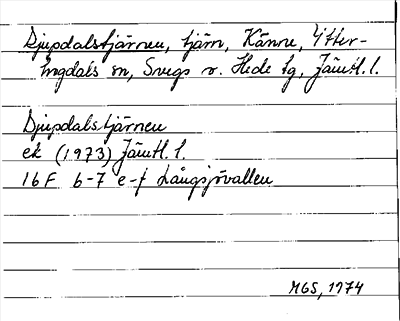 Djupdalstjärnen, tjärn, Känne, Ytter-
hogdals sn, Svegs o. Hede tg, Jämtl. l.
Djupdalstjärnen
ek (1973) Jämtl. l.
16F 6-7 e-f Långsjövallen
MGS, 1974